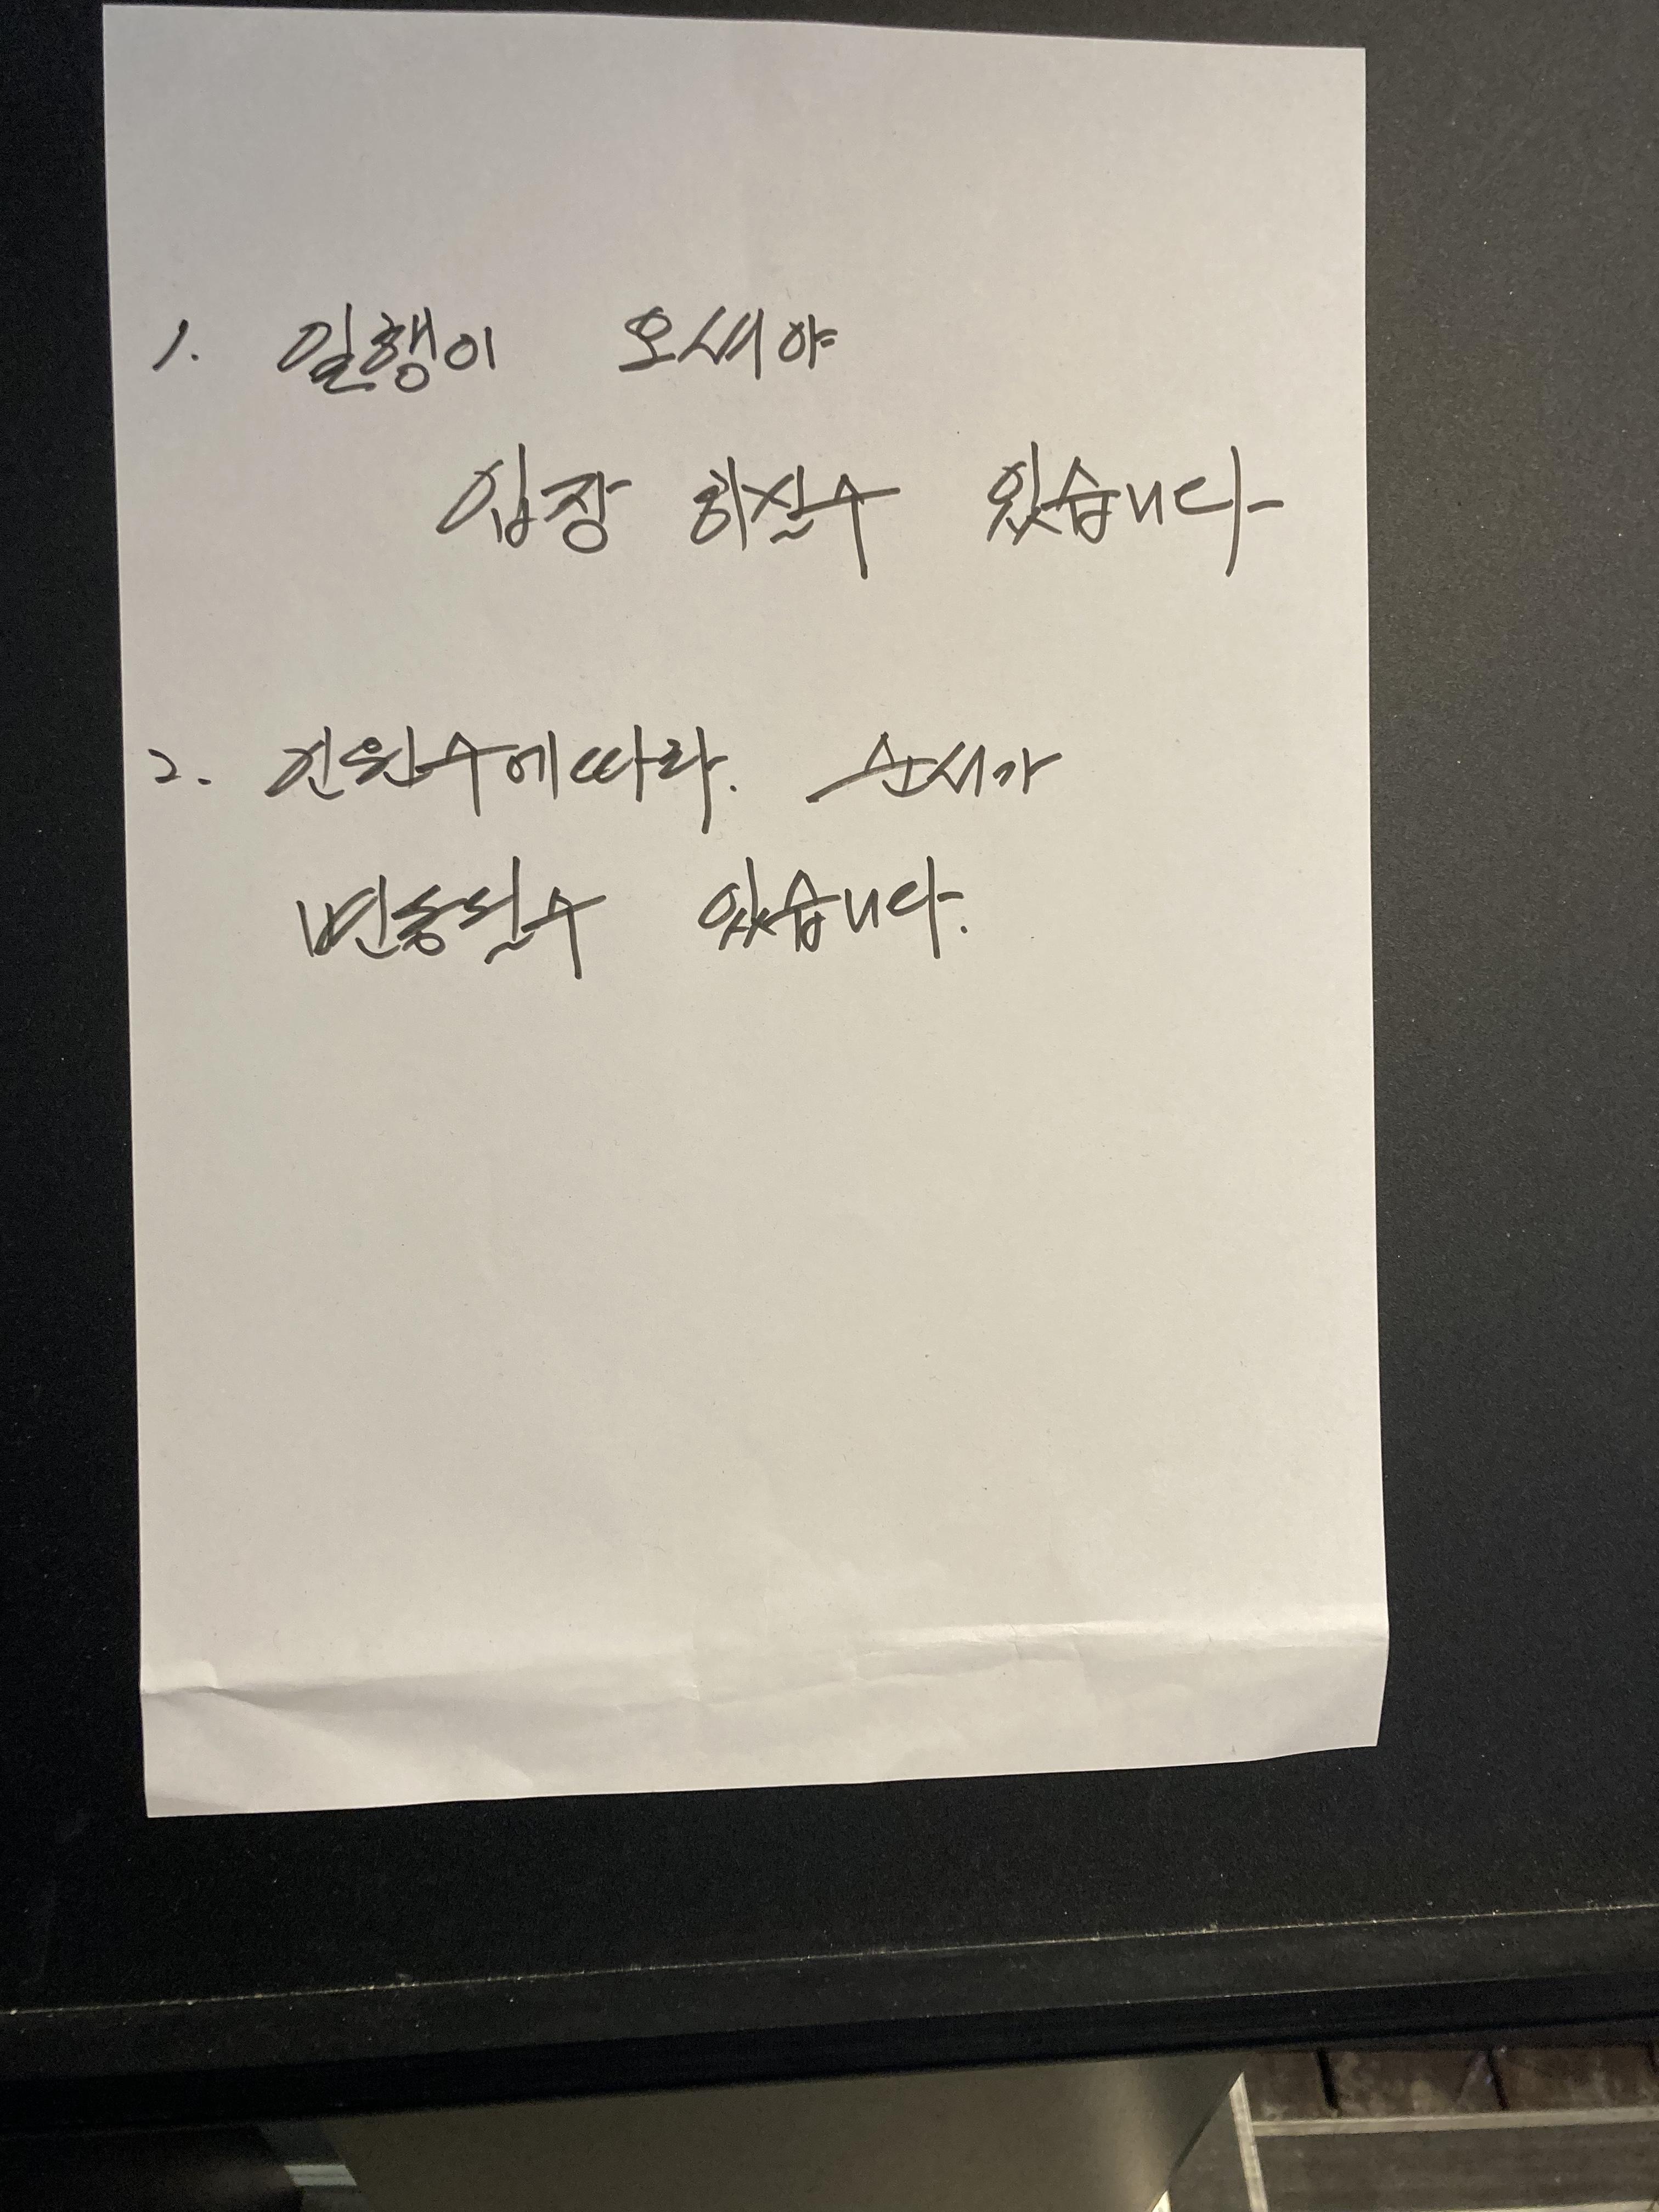 1. 일행이 오셔야
입장 하실수 있습니다
2. 인원수에따라. 순서가
변동될수 있습니다.